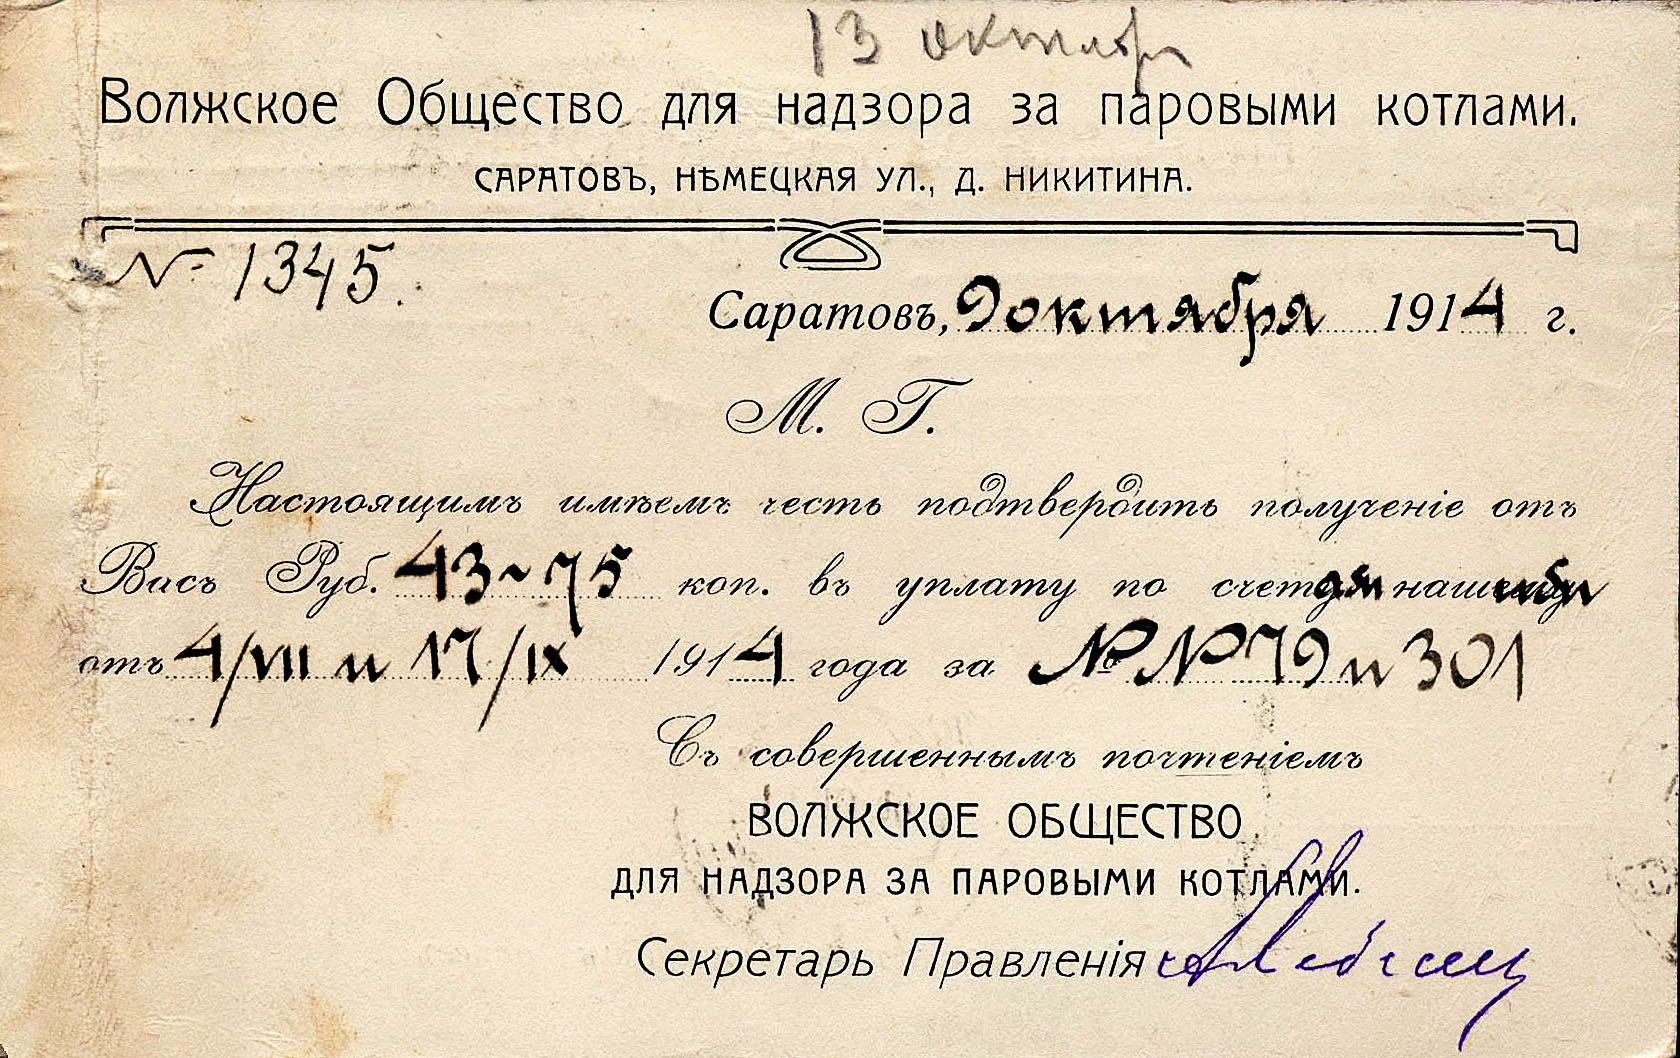 13 октябр
Волжское Общество для надзора за паровыми котлами.
САРАТОВЪ, НѢМЕЦКАЯ УЛ., Д. НИКИТИНА.
№ 1345.
Саратовъ, 9 октября 1914 г.
М. Г.
Настоящимъ имѣемъ честь подтвердить полученіе отъ
Васъ Руб. 43 ~ 75 коп. въ уплату по счетамъ нашимъ
отъ 4/VII и 17/IX 1914 года за № № 79 и 301
Съ совершеннымъ почтеніемъ
ВОЛЖСКОЕ ОБЩЕСТВО
ДЛЯ НАДЗОРА ЗА ПАРОВЫМИ КОТЛАМИ.
Секретарь Правленія